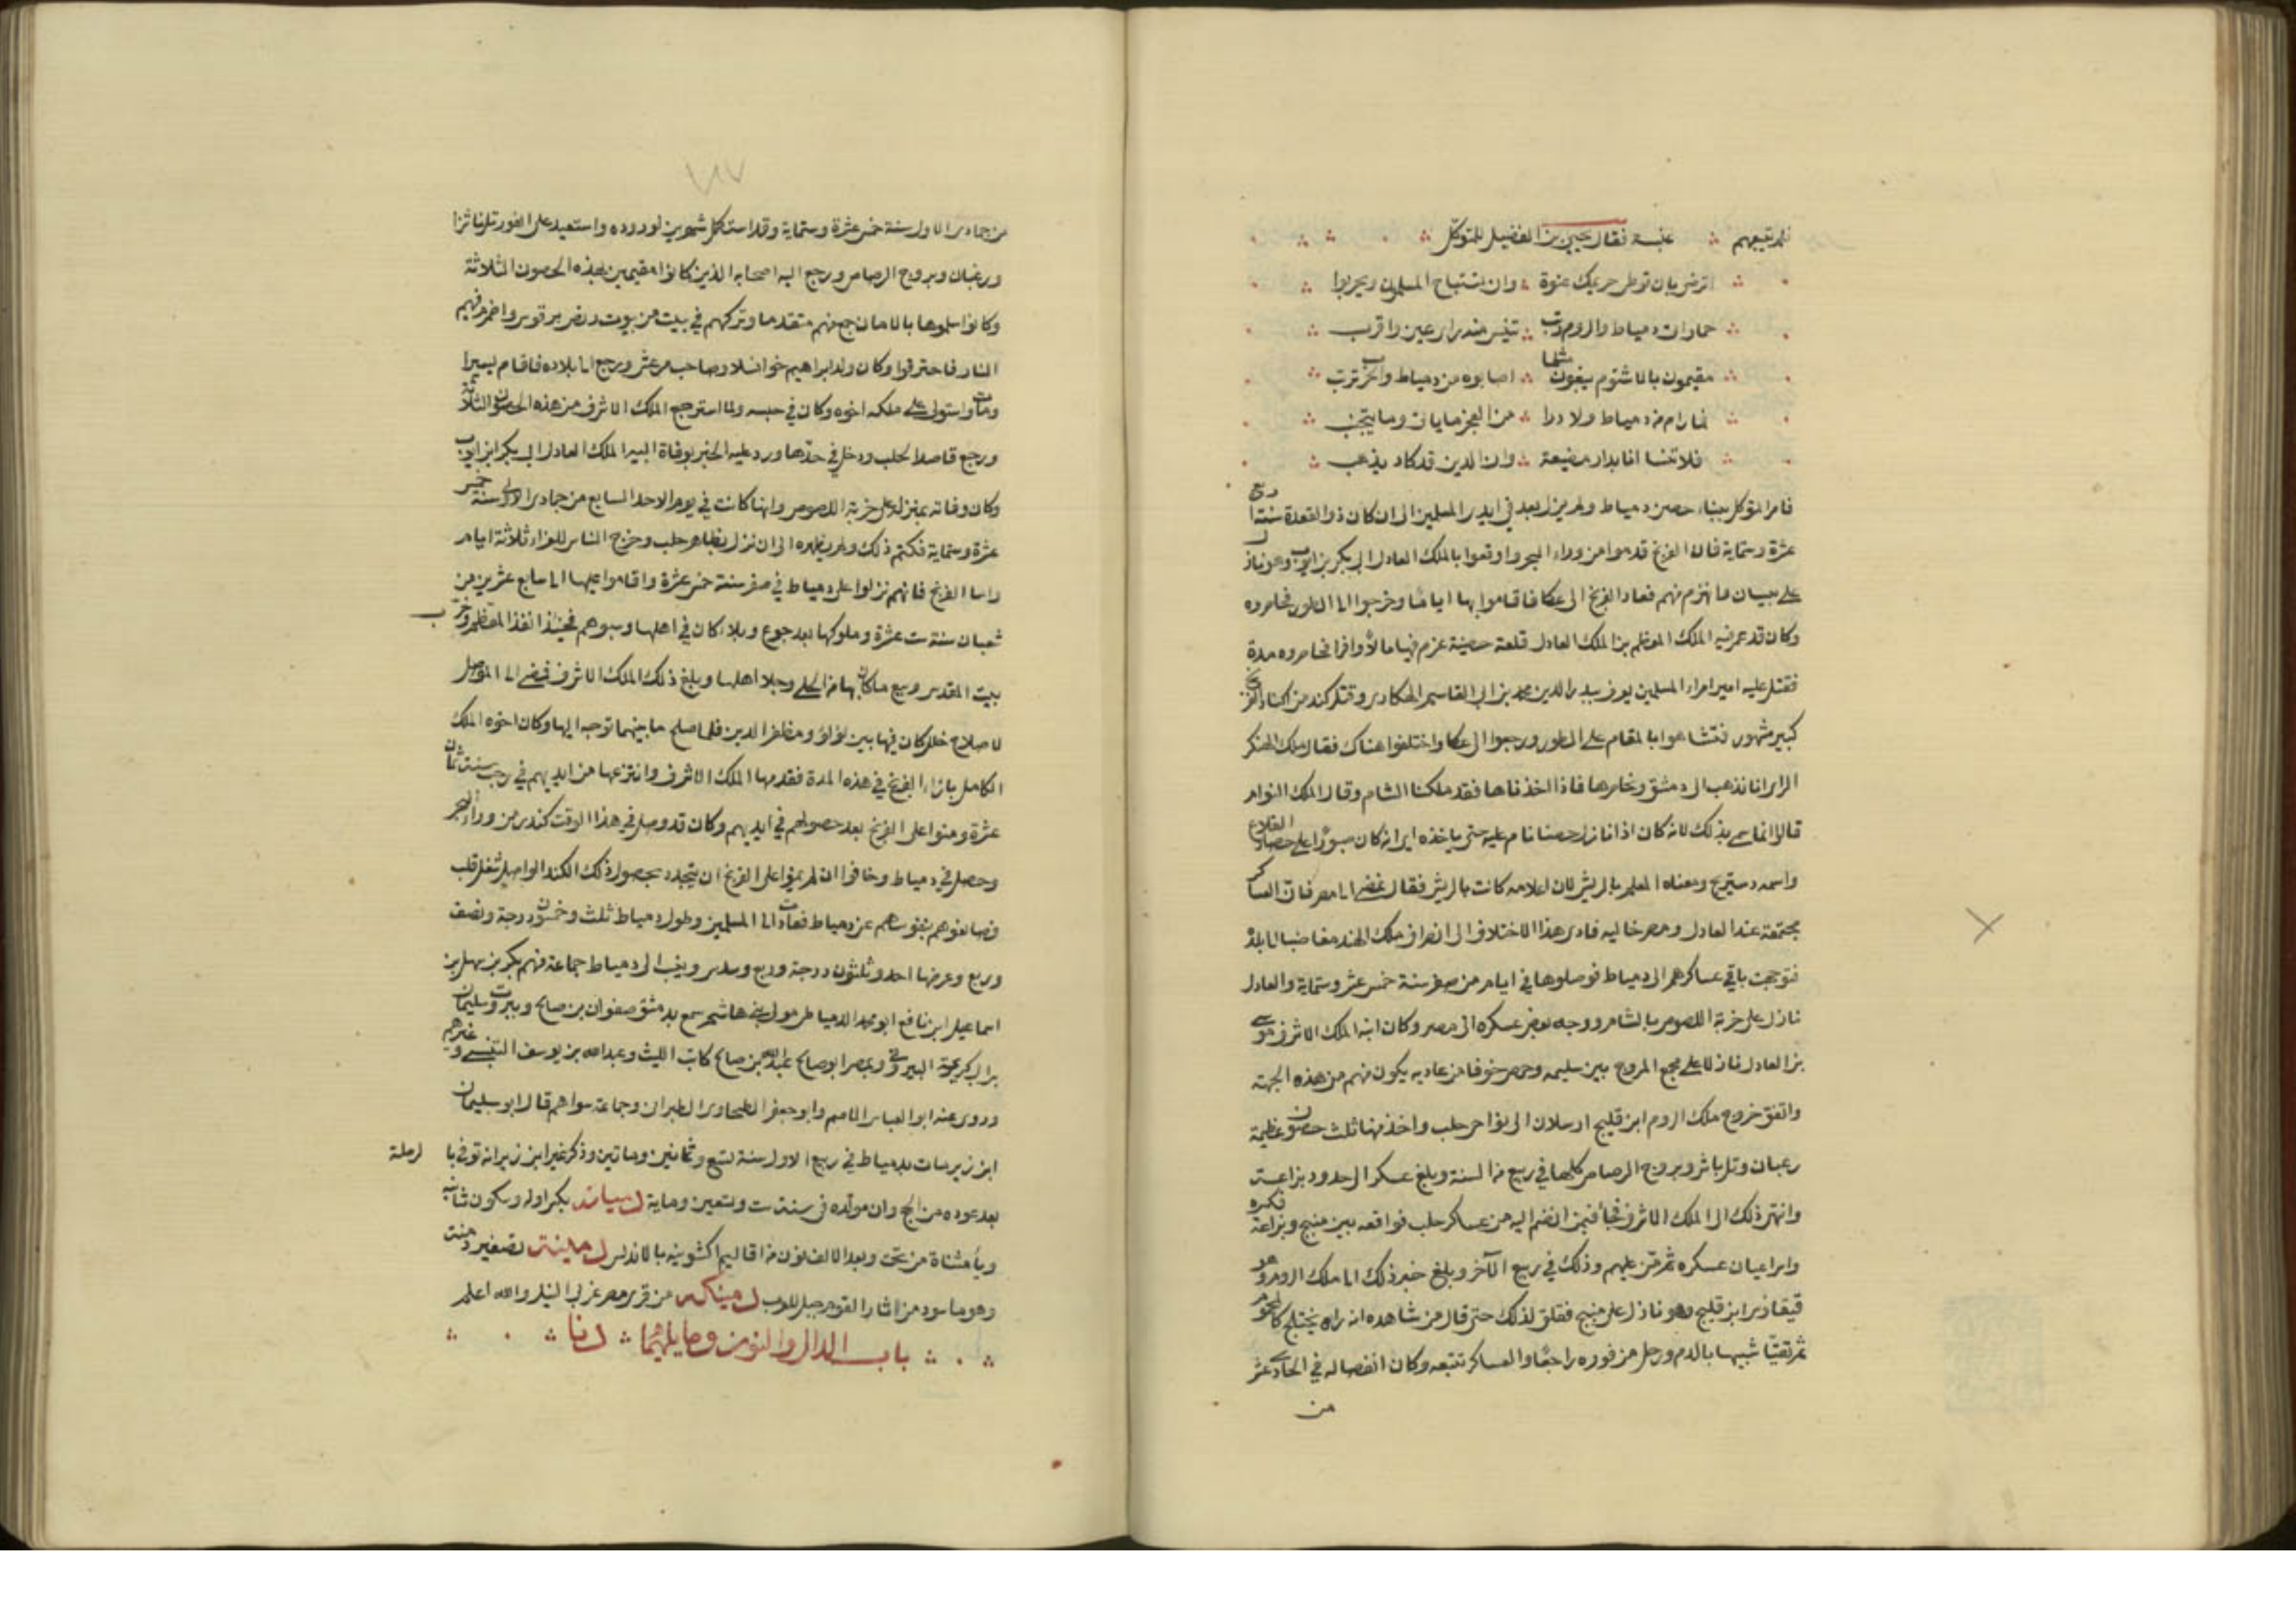 فلم يتبعهم عنبسة فقال يحيى بن الفضيل للمتوكل
اترضى بان توطى حريمك عنوة وان يستباح المسلمون ويحربوا
حمار اتى دمياط والروم رتب تنيس منه راى عين واقرب
مقيمون بالاشتوم يبغون مثلما اصابوه من دمياط والحرب ترتب
فما رام من دمياط ولا درا من العجز ما ياتى وما يتجنب
فلا تنسا انا بدار مضيعة وان الدين قد كاد يذهب
فامر المتوكل ببناء حصن دمياط ولم يزل بعد في ايدي المسلمين الى ان كان ذو القعدة سنة اربع
عشرة وستماية فان الفرنج قدموا من وراء البحر واوقعوا بالملك العادل ابي بكر بن ايوب وهو نازل
على بيسان فانهزم منهم فعاد الفرنج الى عكا فاقاموا بها اياما وخرجوا الى الطور فحاصروه
وكان قد عمر فيه الملك المعظم بن الملك العادل قلعة حصينة غرم فيها مالا وافرا فحاصروه مدة
فقتل عليه امير امراء المسلمين يعرف ببدر الدين محمد بن ابي القاسم الهكاري وقتل كند من اكناد الفرنج
كبير مشهور فتشاموا بالمقام على الطور ورجعوا الى عكا واختلفوا هناك فقال ملك الهنكر
الراي انا نذهب الى دمشق ونحاصرها فاذا اخذناها فقد ملكنا الشام وقال الملك النوام
قالوا انما سمي بذلك لانه كان اذا نازل حصنا نام عليه حتى ياخذه اي انه كان صبورا على حصار القلاع
واسمه دستريج ومعناه المعلم بالريش لان اعلامه كانت بالريش فقال نمضى الى مصر فان العساكر
مجتمعة عند العادل ومصر خالية فادى هذا الاختلاف الى انصراف ملك الهند مغاضبا الى بلده
فتوجهت باقي عساكرهم الى دمياط فوصلوها في ايام من صفر سنة خمس عشر وستماية والعادل
نازل على خربة اللصوص بالشام ووجه بعض عسكره الى مصر وكان ابنه الملك الاشرف موسى
بن العادل نازلا على مجمع المروج بين سليمه وحمص خوفا من عاديه يكون منهم من هذه الجهة
واتفق خروج ملك الروم ابن قليج ارسلان الى نواحي حلب واخذ منها ثلث حصون عظيمة
رعبان وتل باشر وبروج الرصاص كلها في ربيع من السنة وبلغ عسكره الى حدود بزاعة
وانتهى ذلك الى الملك الاشرف فجأ فيمن انضم اليه من عساكر حلب فواقعه بين منبج وبزاعة فكسره
واسر اعيان عسكره ثم من عليهم وذلك في ربيع الآخر وبلغ خبر ذلك الى ملك الروم وهو
قيقاذي ابن قليج وهو نازل على منبج فقلق لذلك حتى قال من شاهده انه راى يختلج كالمحموم
ثم تقيا شبيها بالدم ورحل من فوره راجعا والعساكر تتبعه وكان انفصاله في الحادي عشر
من
من جمادى الاول سنة خمس عشرة وستماية وقد استكمل شهرين لوروده واستعيد على الفور تل باشر
ورعبان وبروج الرصاص ورجع اليه اصحابه الذين كانوا مقيمين بهذه الحصون الثلاثة
وكانوا سلموها بالامان جمع منهم متقدما وتركهم في بيت من بيوت ربض برقوس واضرم فيهم
النار فاحترقوا وكان ولد ابراهيم خوانسلار صاحب مرعش ورجع الى بلاده فاقام يسيرا
ومات واستولى على ملكه اخوه وكان في حبسه ولما استرجع الملك الاشرف من هذه الحصون الثلاثة
ورجع قاصدا لحلب ودخل في حدها ورد عليه الخبر بوفاة ابيه الملك العادل ابي بكر ابن ايوب
وكان وفاته بمنزلة على خربة اللصوص وانها كانت في يوم الاحد السابع من جمادى الاولى سنة خمس
عشرة وستماية فكتم ذلك ولم يظهره الى ان نزل بظاهر حلب وخرج الناس للعزاء ثلاثة ايام
واما الفرنج فانهم نزلوا على دمياط في صفر سنة خمس عشرة واقاموا عليها الى سابع عشرين من
شعبان سنة ست عشرة وملوكها بعد جوع وبلاء كان في اهلها وسبوهم فحينئذ انفذ المعظم وخرب
بيت المقدس وبيع ما كان بها من الحلي وجلا اهلها وبلغ ذلك الملك الاشرف فمضى الى الموصل
لاصلاح خلل كان فيها بين لؤلؤ ومظفر الدين فلما صلح ما بينهما توجه اليها وكان اخوه الملك
الكامل بازاء الفرنج في هذه المدة فقدمها الملك الاشرف وانتزعها من ايديهم في رجب سنة ثمان
عشرة ومنوا على الفرنج بعد حصولهم في ايديهم وكان قد وصل في هذا الوقت كند من وراء البحر
وحصل في دمياط وخافوا ان لم يمنوا على الفرنج ان يتجدد بحصول ذلك الكند الواصل شغل قلب
فصانعوهم بنفوسهم عن دمياط فعادت الى المسلمين وطول دمياط ثلث وخمسون درجة ونصف
وربع وعرضها احد وثلثون درجة وربع وسدس وينسب الى دمياط جماعة منهم بكر بن سهل بن
اسماعيل ابن نافع ابو محمد الدمياطي مولى بني هاشم سمع بدمشق صفوان بن صالح وببيروت سليمان
بن ابي كريمة البيروتي وبمصر ابو صالح عبد الله بن صالح كاتب الليث وعبد الله بن يوسف التنيسي وغيرهم
وروى عنه ابو العباس الاصم وابو جعفر الطحاوي والطبراني وجماعة سواهم قال ابو سليمان
ابن زبر مات بدمياط في ربيع الاول سنة تسع وثمانين وماتين وذكر غير ابن زبر انه توفي بالرملة
بعد عوده من الحج وان مولده في سنة ست وتسعين وماية بكسر اوله وسكون ثانيه
ويأ مثناة من تحت وبعد الالف نون من اقاليم اكشونيه بالاندلس تصغير دمنة
وهو ما سود من اثار القوم جبل للعرب من قرى مصر غربي النيل والله اعلم
باب الدال والنون وما يليهما دنا